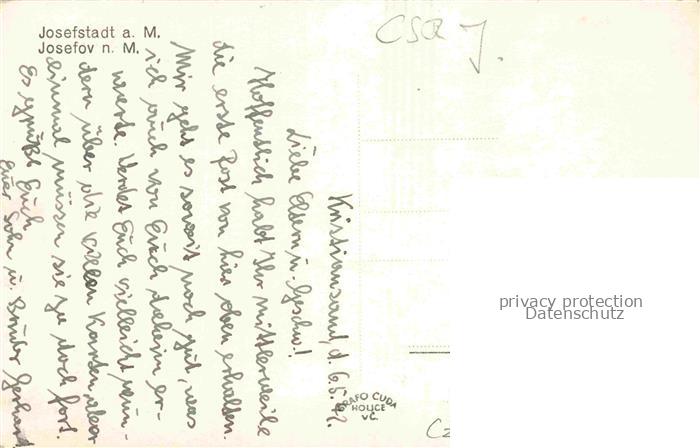 Josefstadt a. M.
Josefov n. M.
CSR J.
Kristiansand, d. 6.5.42.
Liebe Eltern u. Geschw.!
Hoffentlich habt Ihr mittlerweile
die erste Post von hier oben erhalten.
Mir geht es soweit noch gut, was
ich auch von Euch daheim er-
warte. Werdet Euch vielleicht wun-
dern über die vielen Karten, aber
einmal müssen sie ja doch fort.
Es grüßt Euch
Euer Sohn u. Bruder Gerhard
GRAFO CUDA
HOLICE
v Č.
privacy protection
Datenschutz
Cz